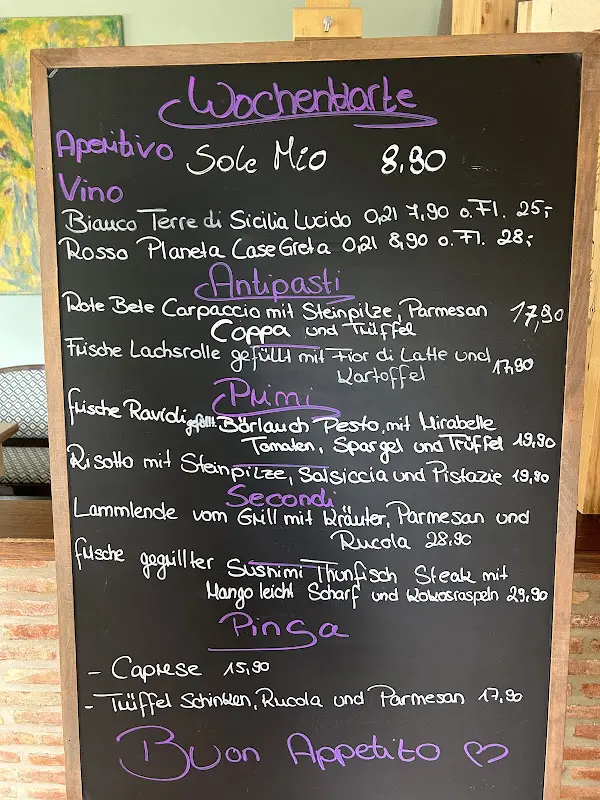 Wochenkarte
Aperitivo Sole Mio 8,90
Vino
Bianco Terre di Sicilia Lucido 0,2l 7,90 o. Fl. 25,-
Rosso Planeta Case Greta 0,2l 8,90 o. Fl. 28,-
Antipasti
Rote Bete Carpaccio mit Steinpilze, Parmesan 17,90
Coppa und Trüffel
Frische Lachsrolle gefüllt mit Fior di Latte und 17,90
Kartoffel
Primi
frische Ravioli gefüllt Bärlauch Pesto, mit Mirabelle
Tomaten, Spargel und Trüffel 19,90
Risotto mit Steinpilze, Salsiccia und Pistazie 19,90
Secondi
Lammlende vom Grill mit Kräuter, Parmesan und
Rucola 28,90
frische gegrillter Sushimi Thunfisch Steak mit
Mango leicht Scharf und Kokosraspeln 29,90
Pinsa
- Caprese 15,90
- Trüffel Schinken, Rucola und Parmesan 17,90
Buon Appetito ♡